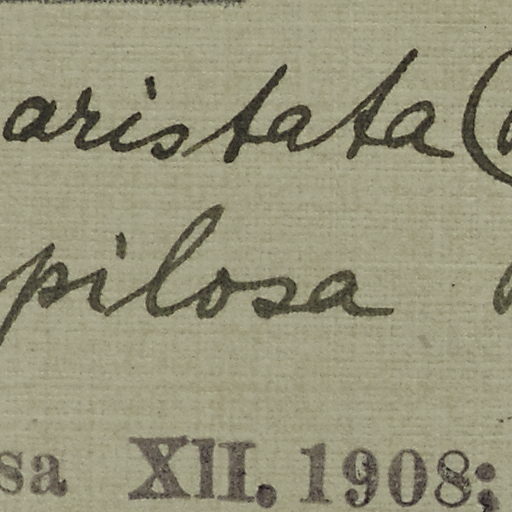 aristata (
pilosa
sa XII. 1908;